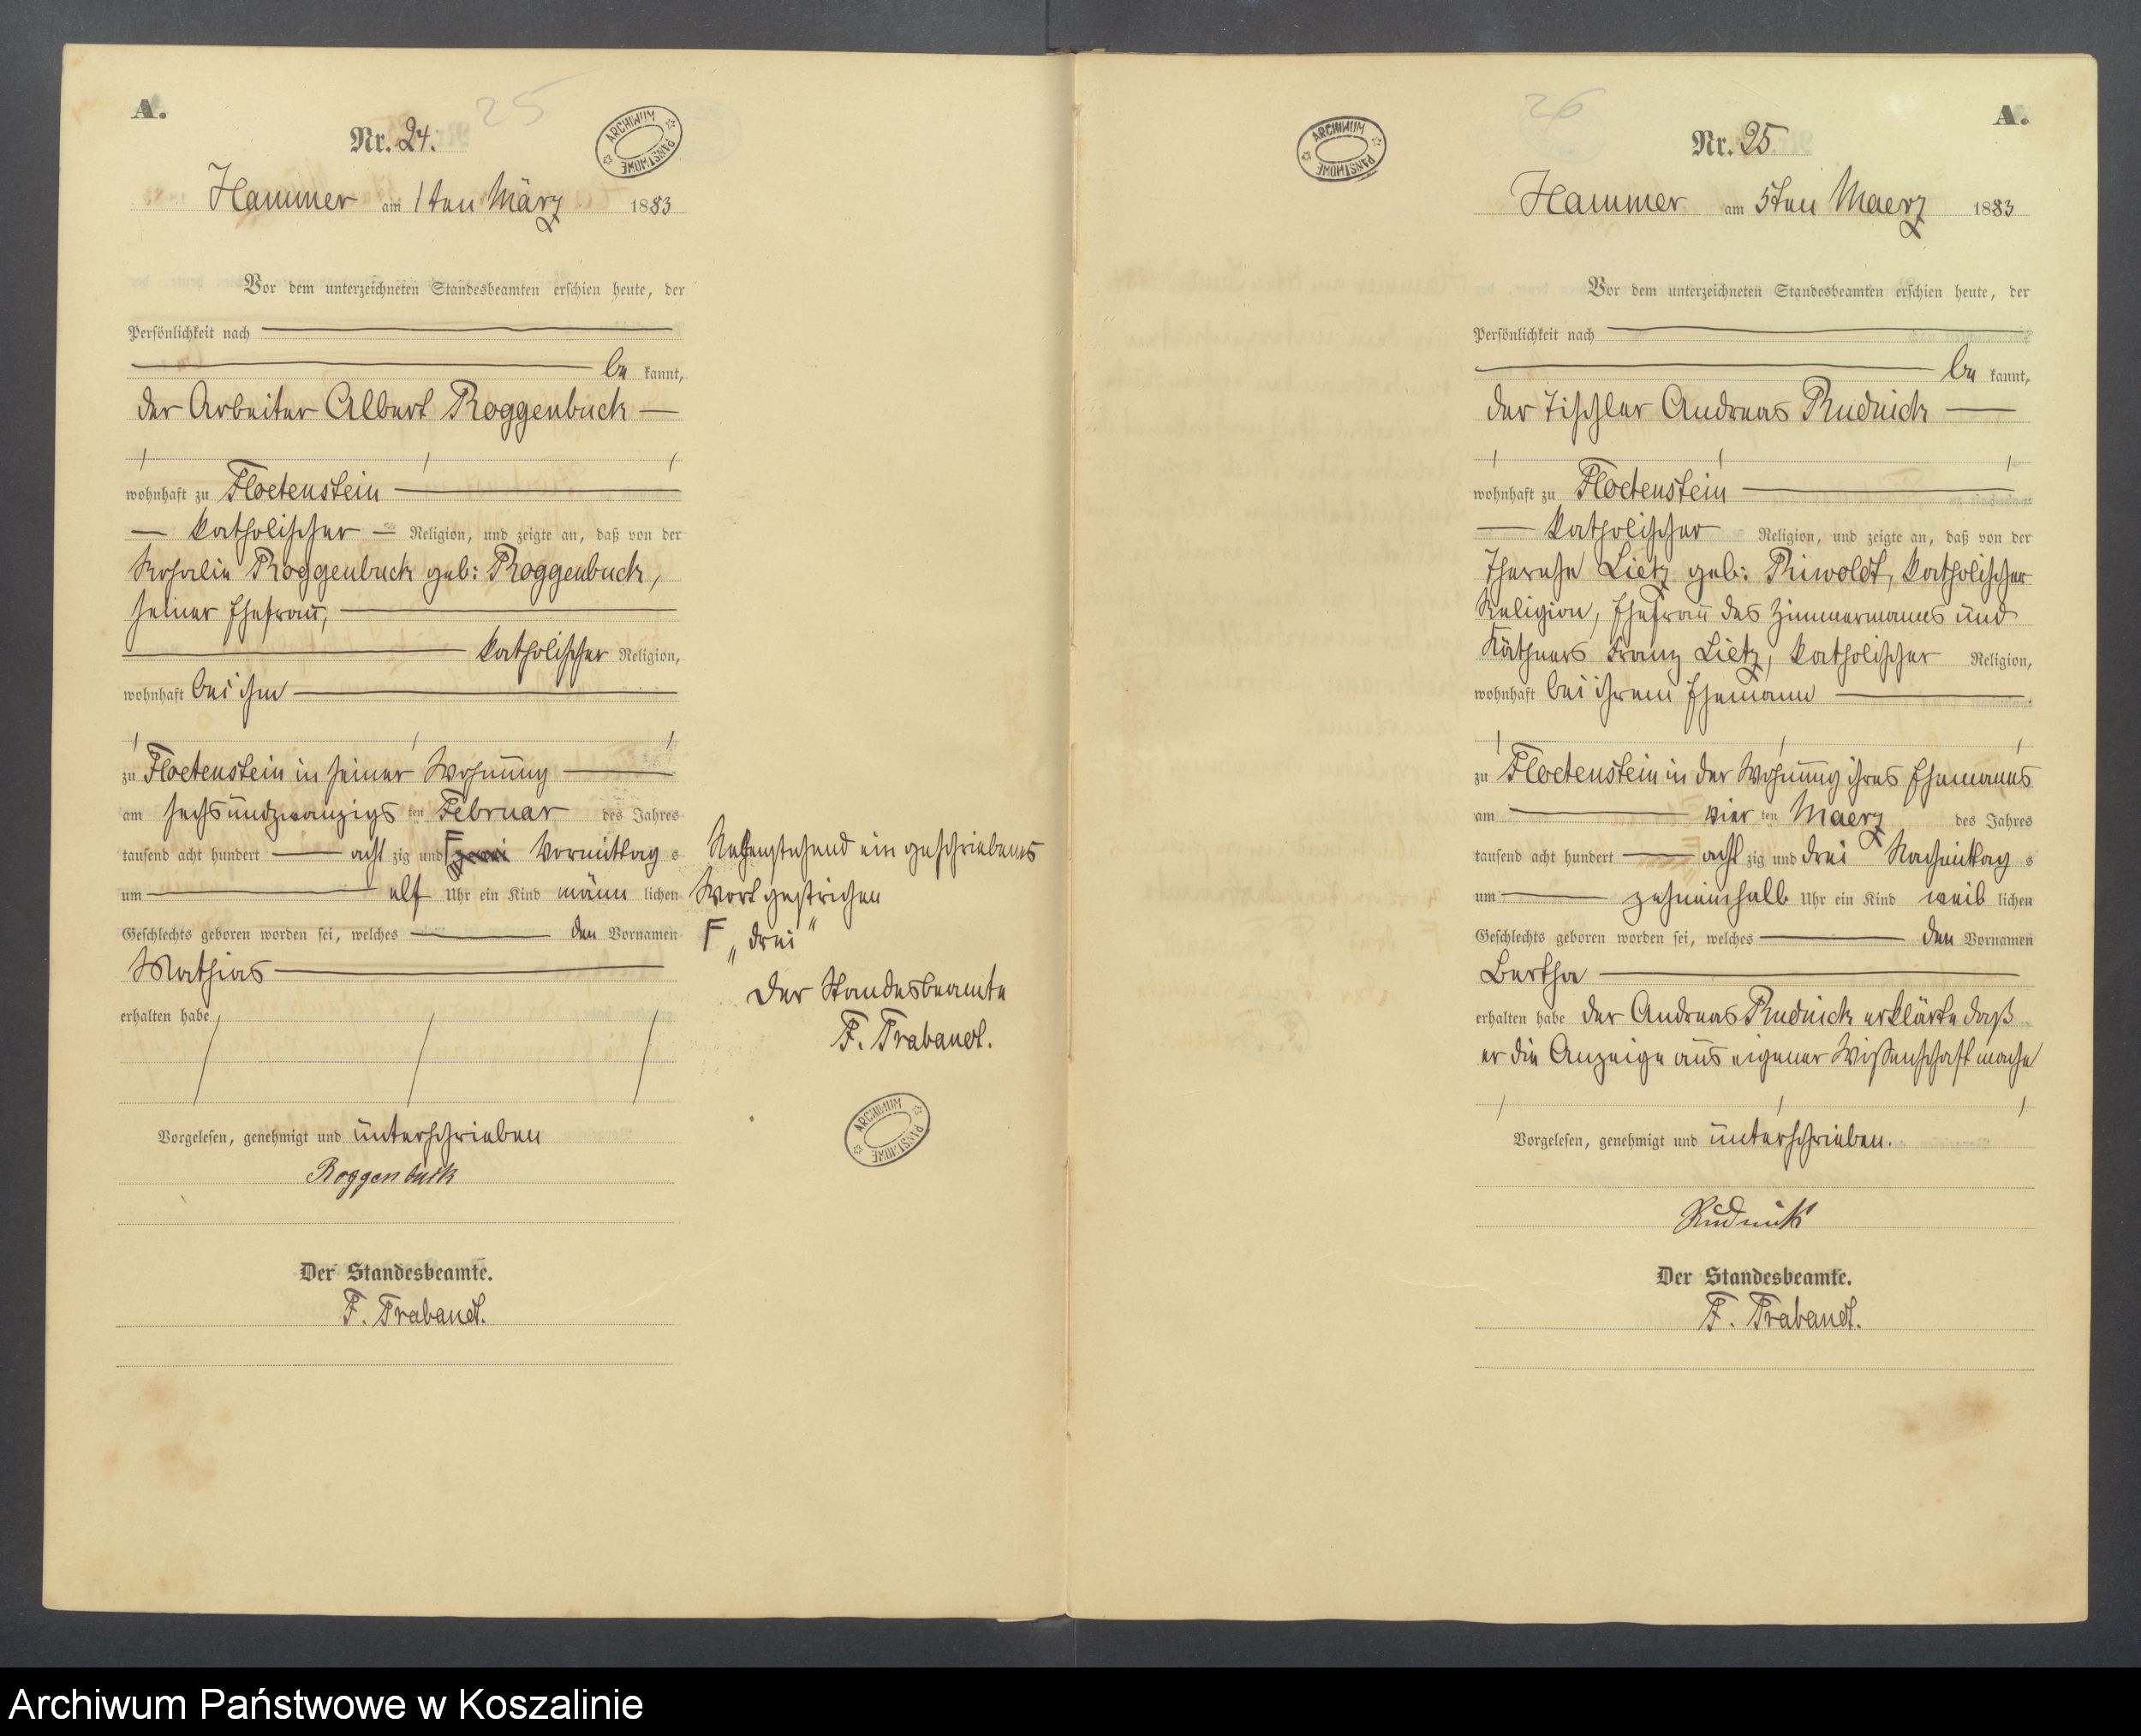 A.
25
Nr. 24.
Hammer am 1ten März 1883
Vor dem unterzeichneten Standesbeamten erschien heute, der
Persönlichkeit nach
be kannt,
der Arbeiter Albert Roggenbuck
wohnhaft zu Floetenstein
katholischer Religion, und zeigte an, daß von der
Rosalie Roggenbuck geb: Roggenbuck,
seiner Ehefrau,
katholischer Religion,
wohnhaft bei ihm
zu Floetenstein in seiner Wohnung
am sechsundzwanzigs ten Februar des Jahres
tausend acht hundert acht zig und F zwei Vormittag s
um elf Uhr ein Kind männ lichen
Geschlechts geboren worden sei, welches den Vornamen
Mathias
erhalten habe
Vorgelesen, genehmigt und unterschrieben
Roggenbuck
Der Standesbeamte.
F. Trabandt.
Nebenstehend ein geschriebenes
Wort gestrichen
F „drei"
Der Standesbeamte
F. Trabandt.
ARCHIWUM PAŃSTWOWE
ARCHIWUM PAŃSTWOWE
ARCHIWUM PAŃSTWOWE
26
A.
Nr. 25
Hammer am 5ten Maerz 1883
Vor dem unterzeichneten Standesbeamten erschien heute, der
Persönlichkeit nach
be kannt,
der Tischler Andreas Rudnick
wohnhaft zu Floetenstein
katholischer Religion, und zeigte an, daß von der
Therese Lietz geb: Riwoldt, katholischer
Religion, Ehefrau des Zimmermanns und
Käthners Franz Lietz, katholischer Religion,
wohnhaft bei ihrem Ehemann
zu Floetenstein in der Wohnung ihres Ehemanns
am vier ten Maerz des Jahres
tausend acht hundert acht zig und drei Nachmittag s
um zehneinhalb Uhr ein Kind weib lichen
Geschlechts geboren worden sei, welches den Vornamen
Bertha
erhalten habe der Andreas Rudnick erklärte daß
er die Anzeige aus eigener Wissenschaft mache
Vorgelesen, genehmigt und unterschrieben.
Rudnick
Der Standesbeamte.
F. Trabandt.
Archiwum Państwowe w Koszalinie